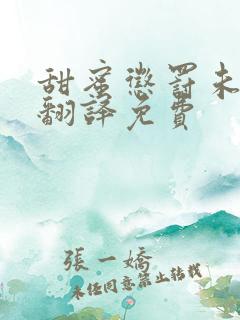 甜蜜懲罰未
翻譯免費
張一嬌
未经同意禁止转载